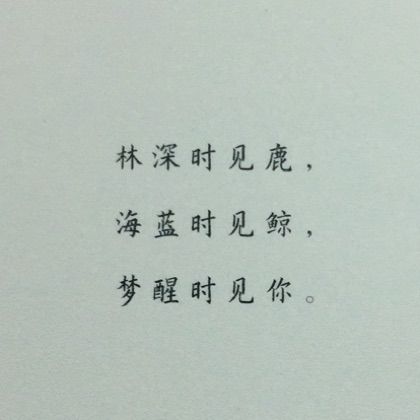 林深时见鹿，
海蓝时见鲸，
梦醒时见你。